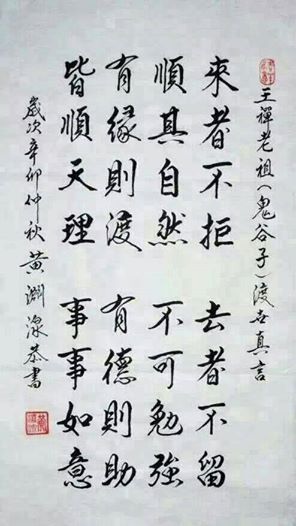 王禪老祖(鬼谷子)渡世真言
來者不拒　去者不留
順其自然　不可勉強
有緣則渡　有德則助
皆順天理　事事如意
歲次辛卯仲秋黃淵泉恭書